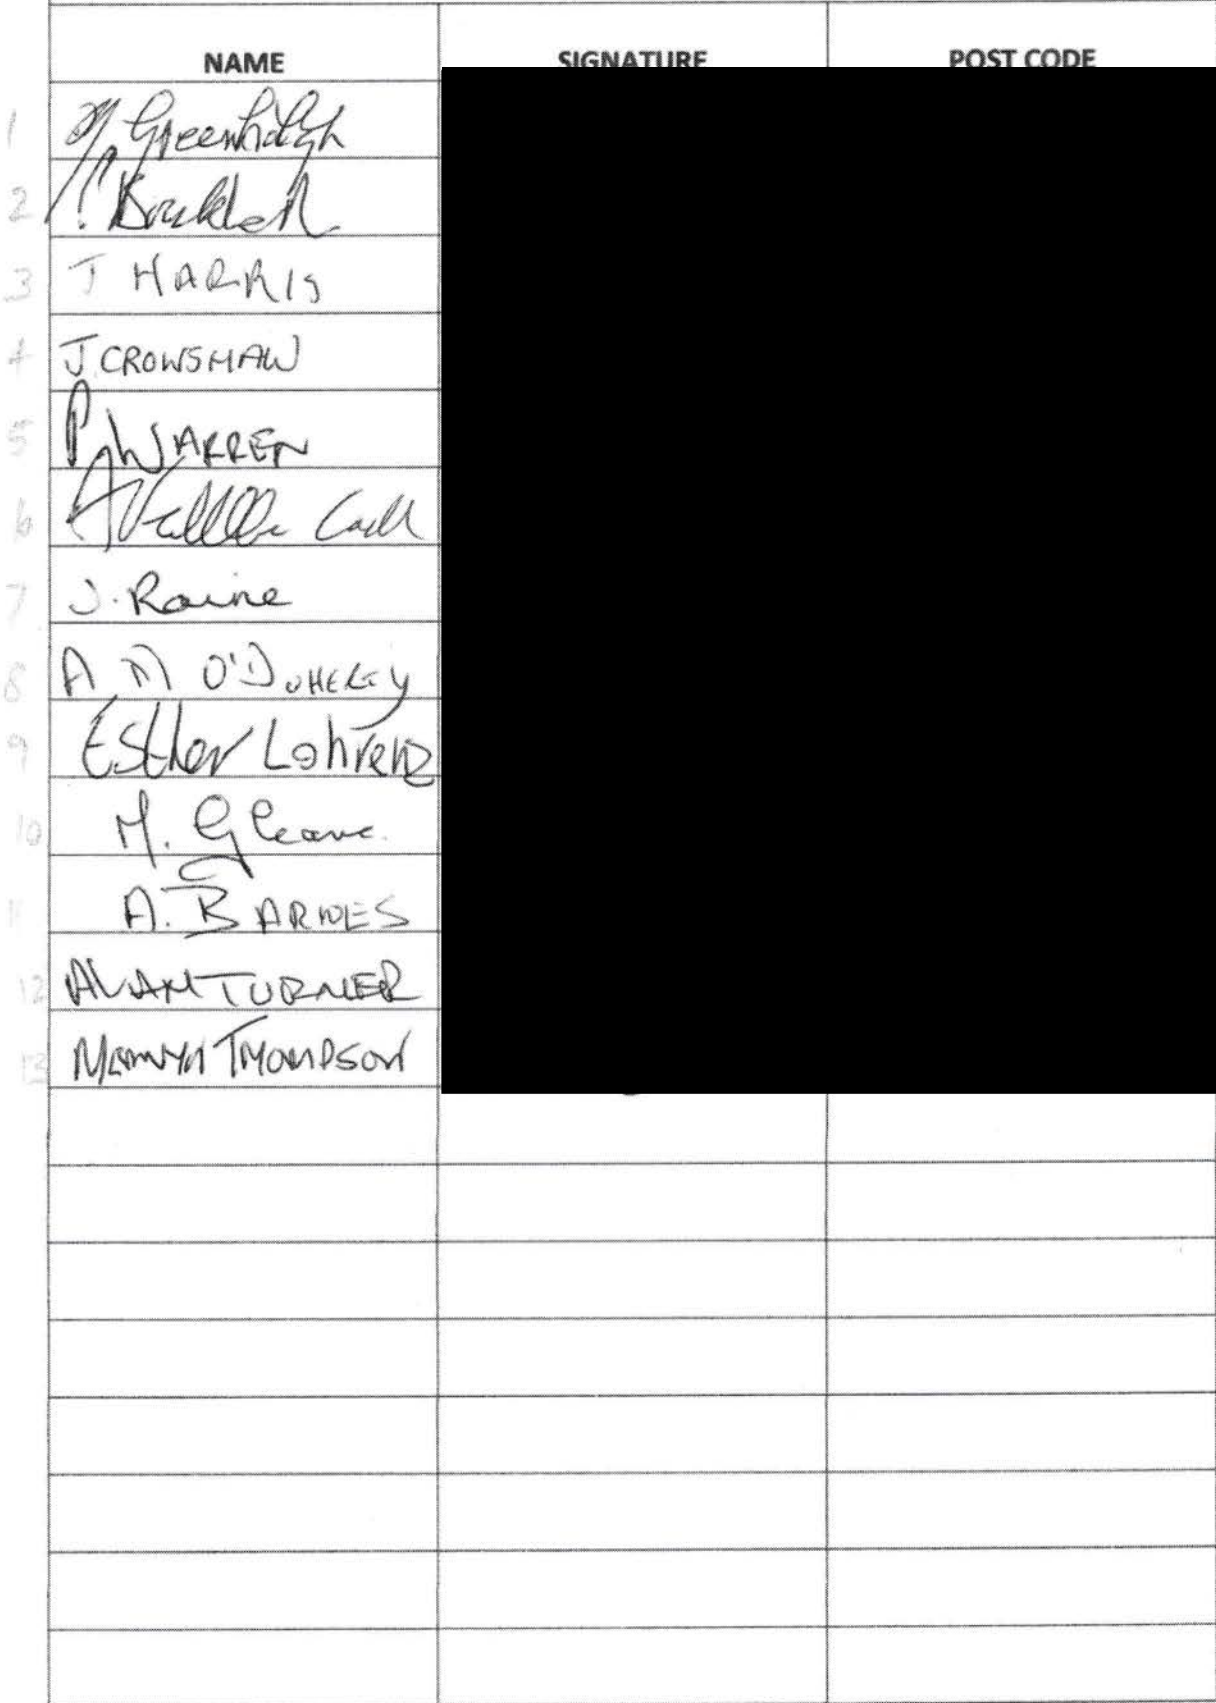 NAME SIGNATURE POST CODE
1 Greenhalgh
2
3 J HARRIS
4 J. CROWSHAW
5 P. WARREN
6
7 J. Raine
8 A M O'DOHERTY
9 Esther Lohrenz
10 M. Gleave.
11 A. BARNES
12 ALAN TURNER
13 THOMPSON